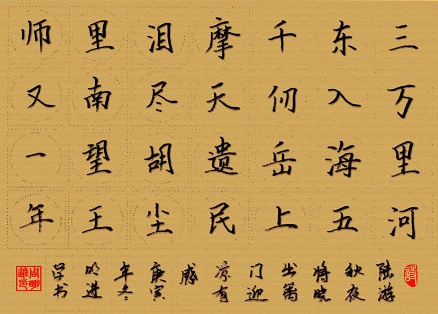 三万里河
东入海五
千仞岳上
摩天遗民
泪尽胡尘
里南望王
师又一年
陆游
秋夜
将晓
出篱
门迎
凉有
感
庚寅
年冬
明进
书